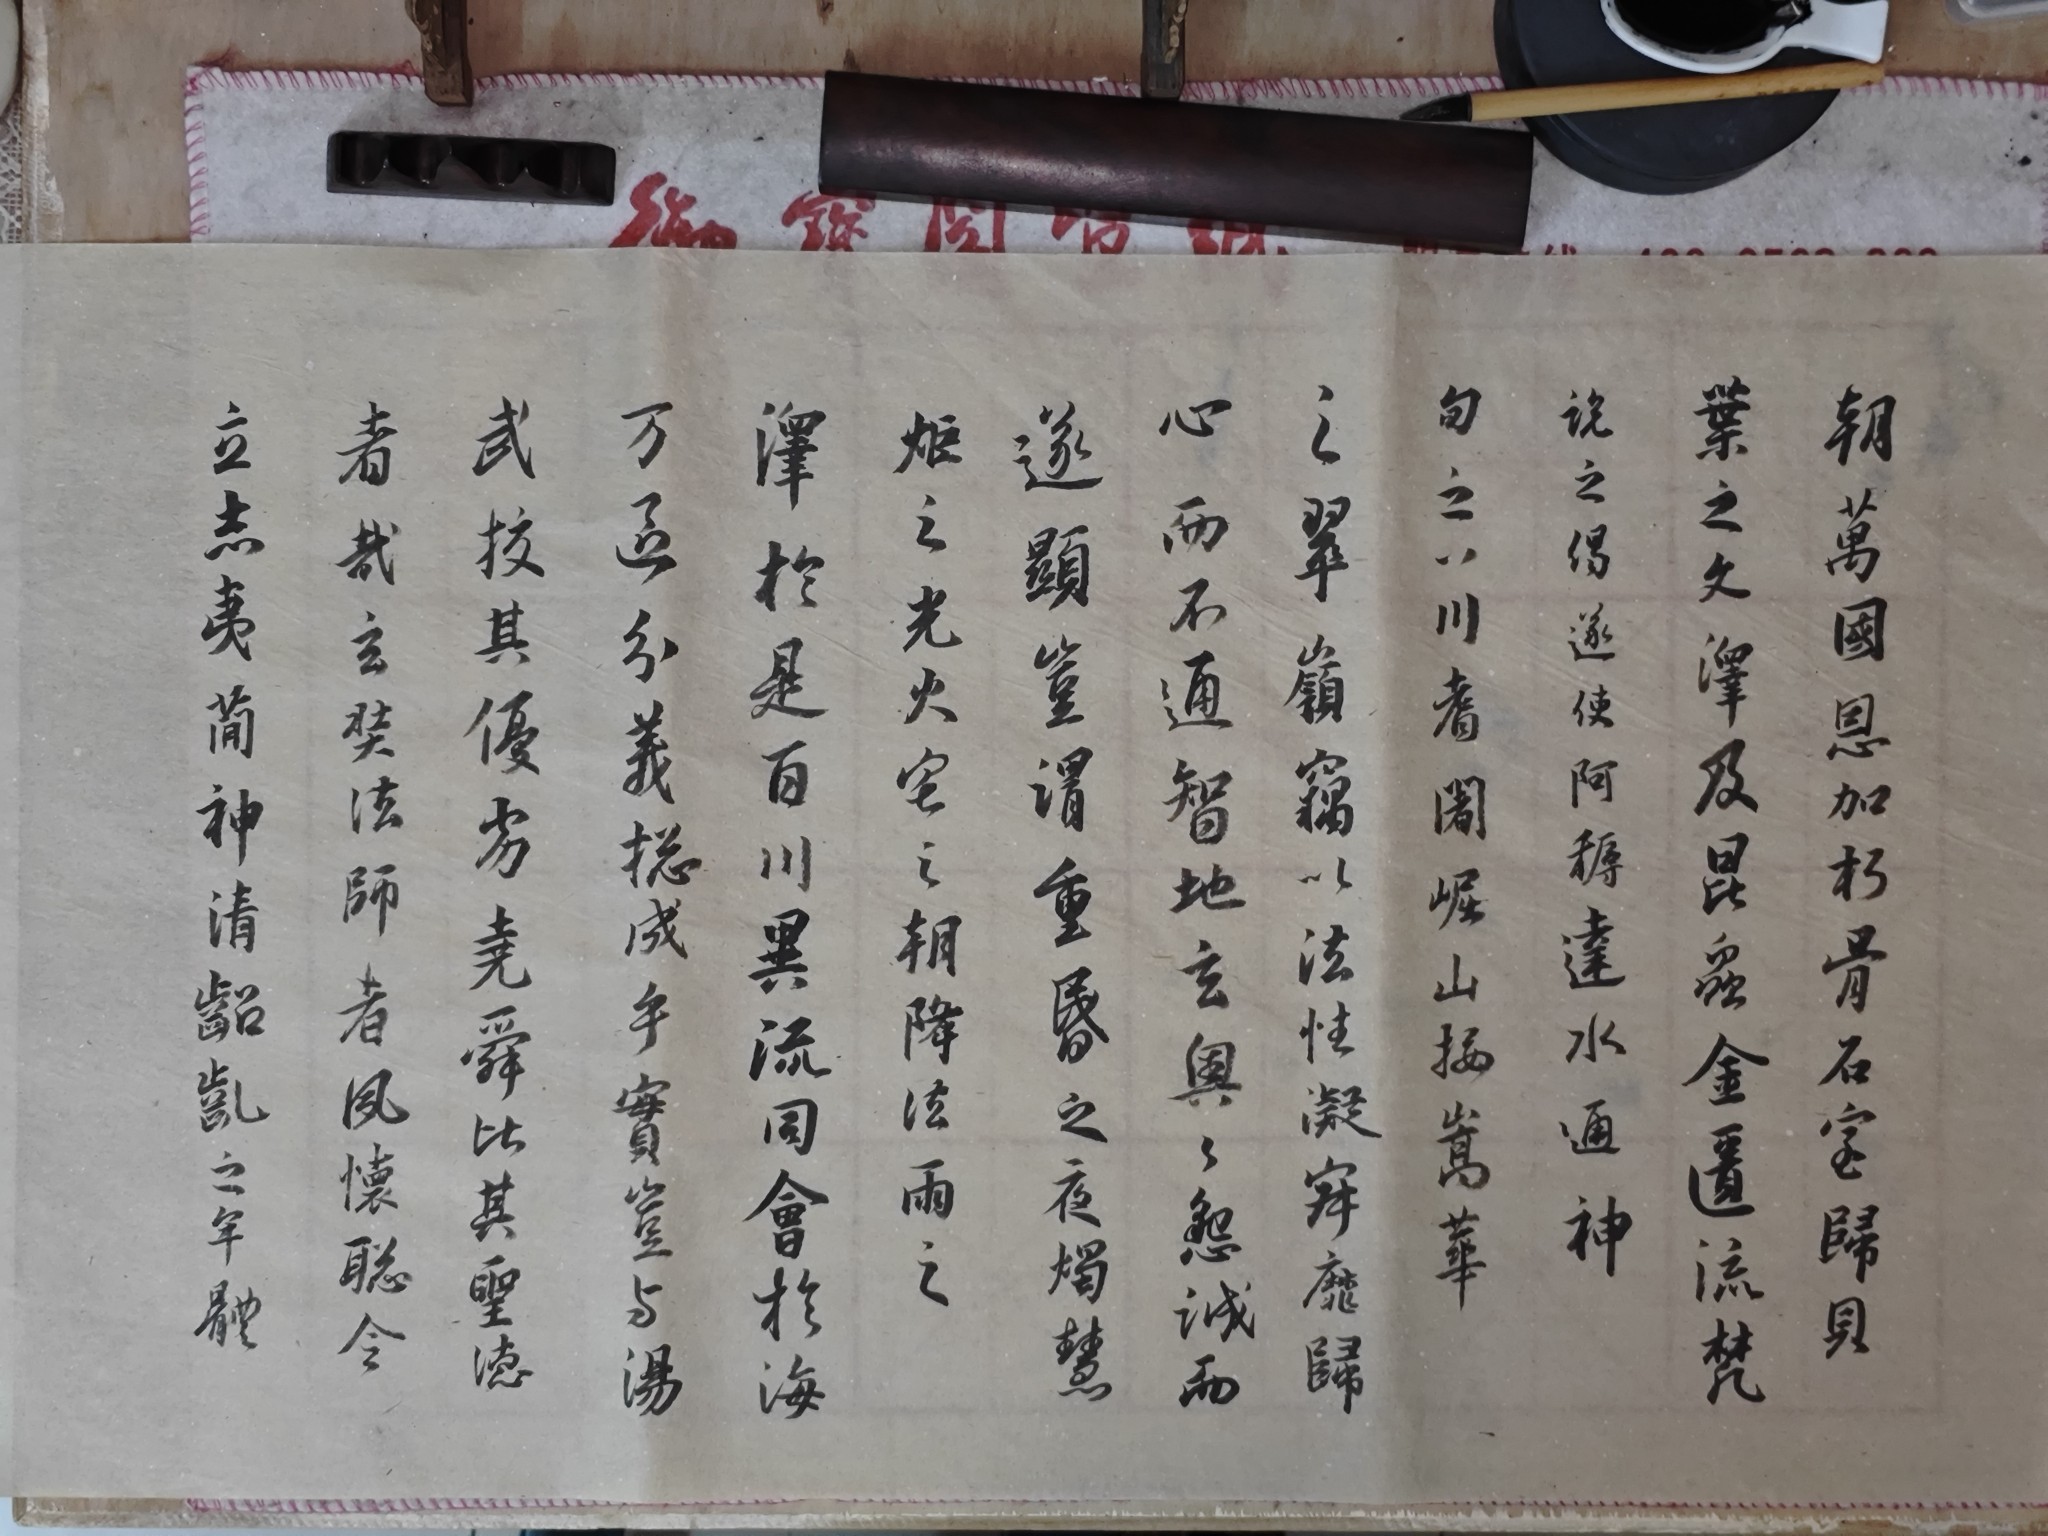 朝萬國恩加朽骨石室歸貝
葉之文澤及昆蟲金匱流梵
說之偈遂使阿耨達水通神
甸之八川耆闍崛山接嵩華
之翠嶺竊以法性凝寂靡歸
心而不通智地玄奧感懇誠而
遂顯豈謂重昏之夜燭慧
炬之光火宅之朝降法雨之
澤於是百川異流同會於海
万區分義揔成乎實豈与湯
武挍其優劣堯舜比其聖德
者哉玄奘法師者夙懷聰令
立志夷簡神清齠齔之年體